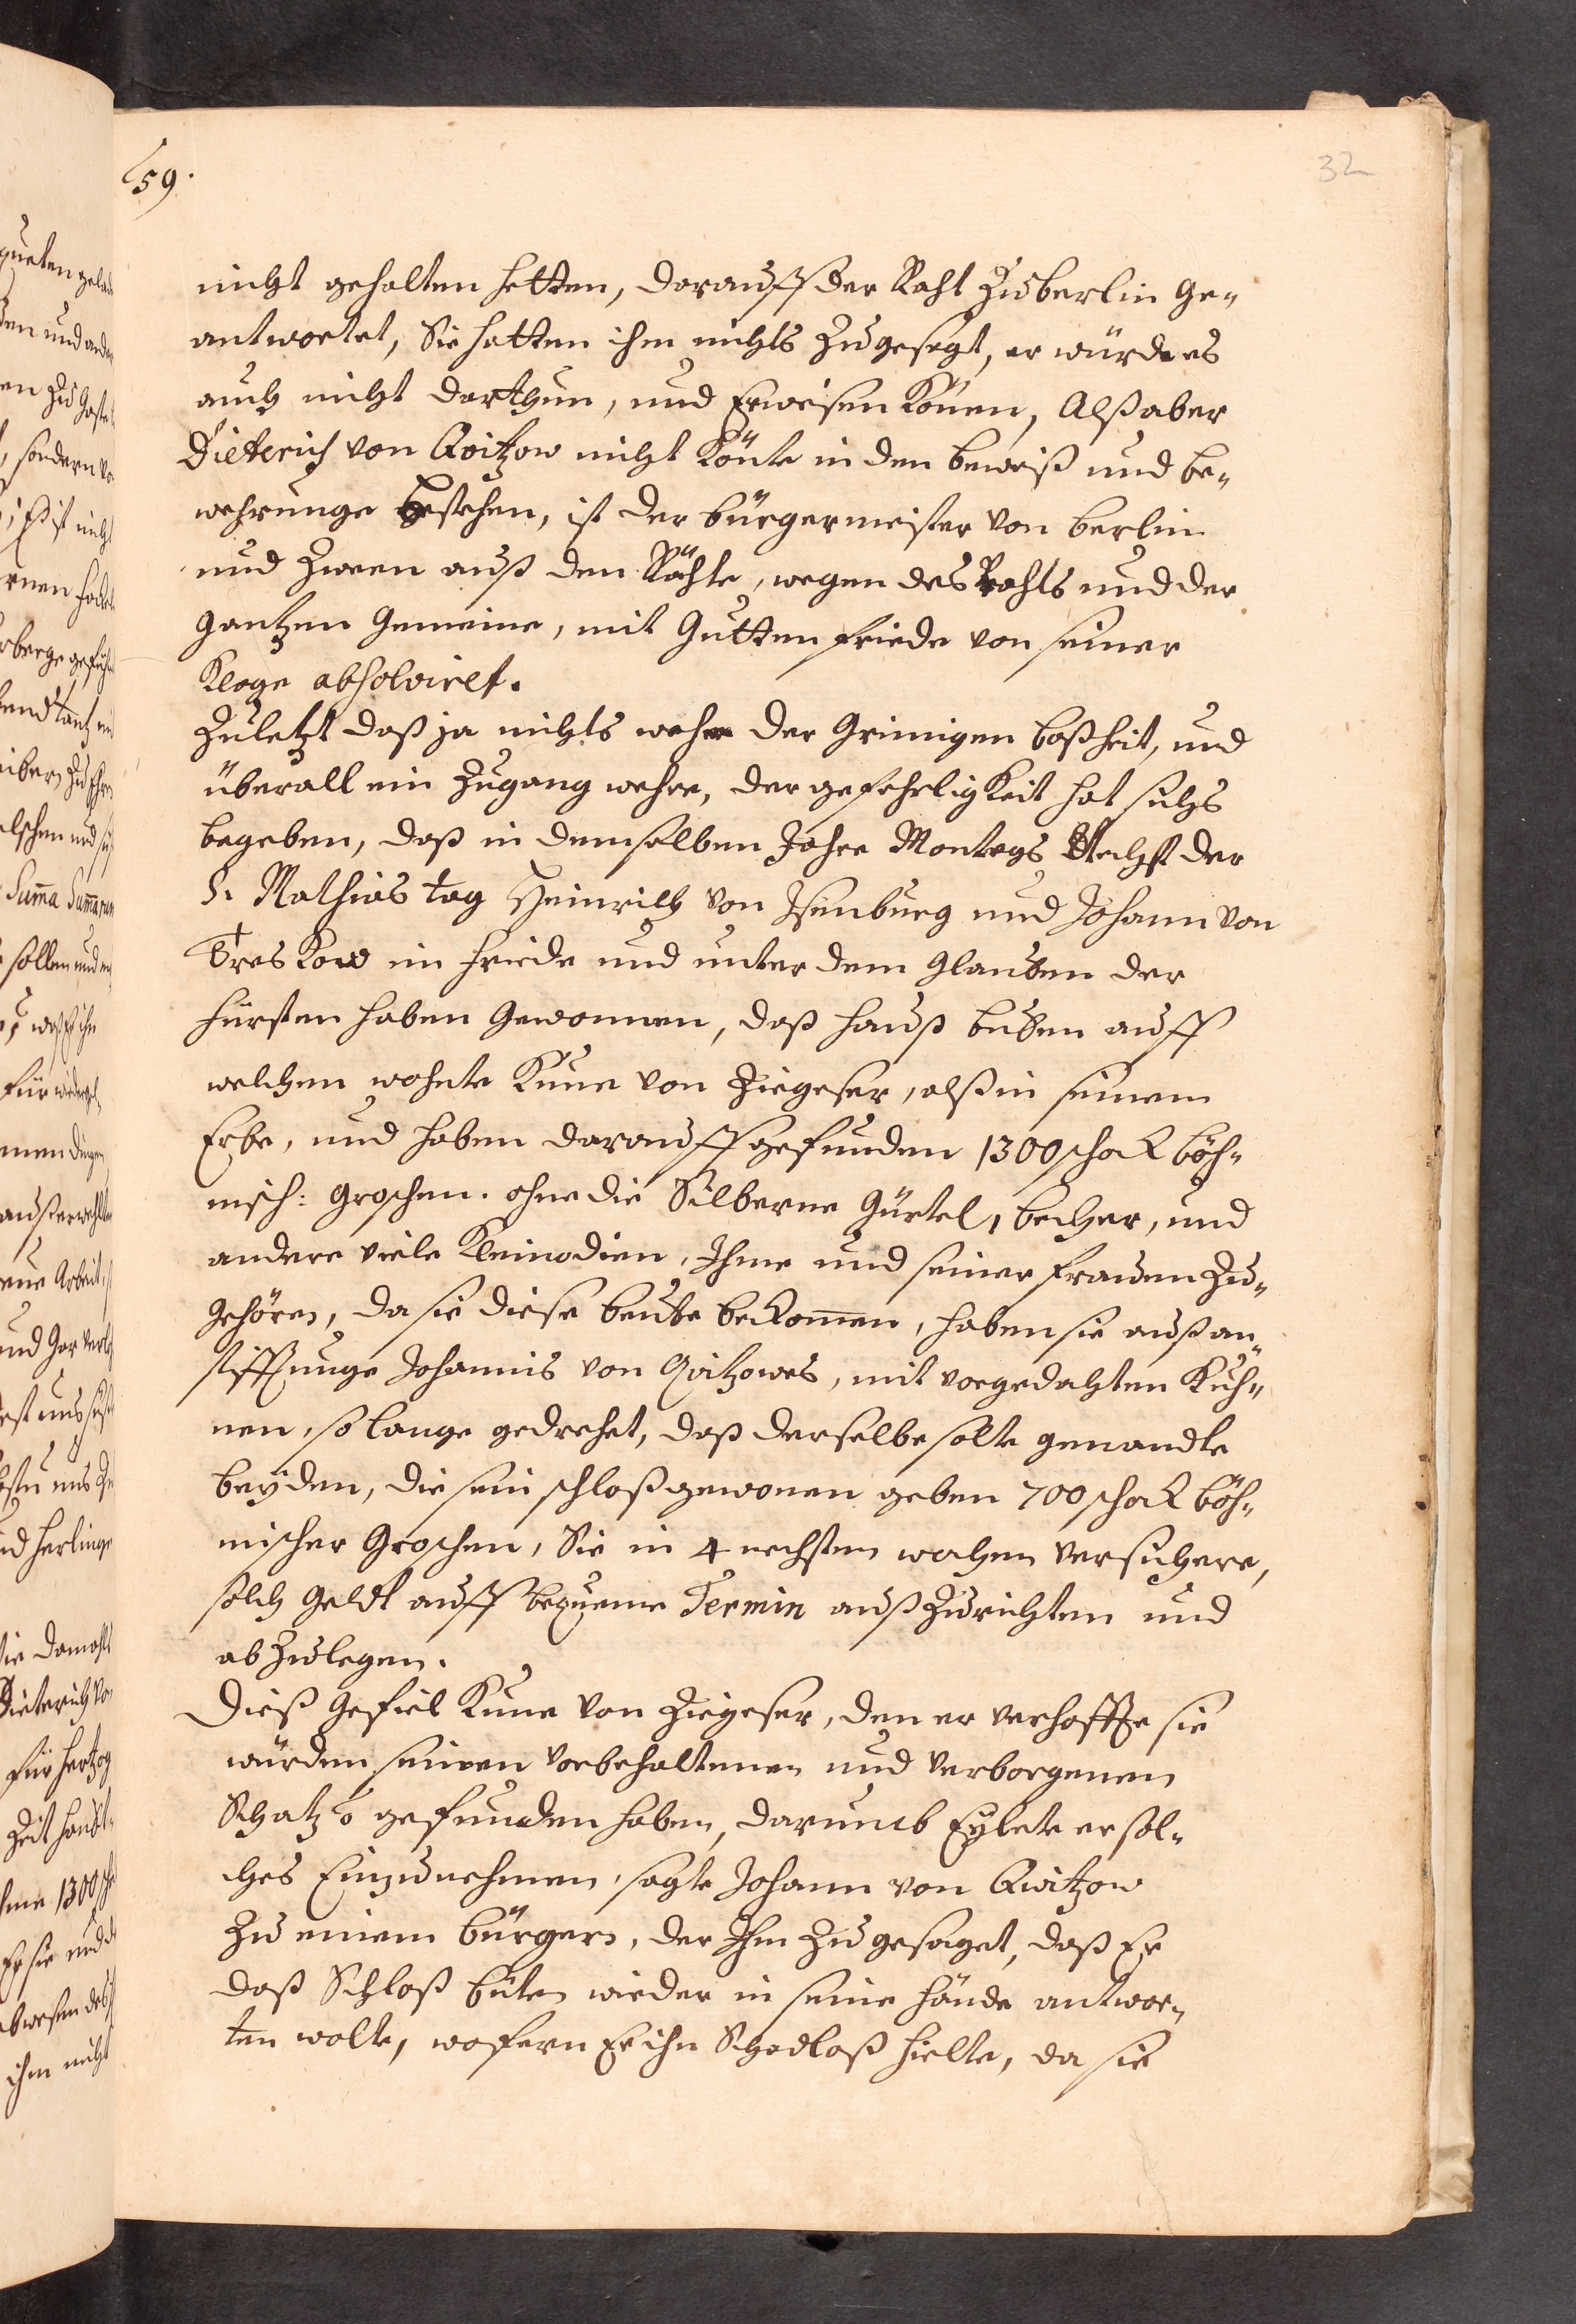 59.
32
nicht gehalten hetten, darauff der Raht Zu berlin Ge-
antwortet, Sie hatten ihm nichts Zugesagt, er würde es
auch nicht darthun, und Erweisen Könen, Alß aber
Dieterich von Qvitzow nicht Könte in den beweiß und be-
wehrunge bestehen, ist der bürgermeister von berlin
und Zween auß den Rähte, wegen des Rahts und der
Gantzen Gemeine, mit Gutten friede von seiner
Klage absolviret.
Zuletzt daß ja nichts wehre der Grimigen boßheit, und
überall ein Zugang wehre, der gefehrligkeit hat sichs
begeben, daß in demselben Jahre Montags Nechst der
S. Mathias tag Heinrich von Isenburg und Johann von
Treskow im friede und unter dem Glauben der
fürsten haben Gewonnen, daß hauß buten auff
welchem wohnte Kune von Ziegeser, alß in seinem
Erbe, und haben darauff gefunden 1300 schock böh-
misch: groschen. ohne die Silberne Gürtel, becher, und
andere viele Kleinodien, Ihme und seiner frauen Zu-
gehören, da sie diese beute bekomen, haben sie auß an-
stifftunge Johannis von Qvitzowes, mit vorgedachten Küh-
nen, so lange gedrehet, daß derselbe solte genandte
beÿden, die sein schloß gewonen geben 700 schock böh-
mischer Groschen, Sie in 4 nechsten wochen versichere,
solch Geldt auff bequeme Termin auß Zurichten und
ab Zulegen.
Dieß Gefiel Kune von Ziegeser, den er verhoffte sie
würden seinen vorbehaltenen und verborgenen
Schatz o gefunden haben, darumb Eÿlete er sol-
ches Einzunehmen, sagte Johann von Qvitzow
Zu einem bürgern, der Ihm Zugesaget, daß Er
daß Schloß buten wieder in seine hände antwor-
ten wolte, wofern Er ihn Schadloß hielte, da sie